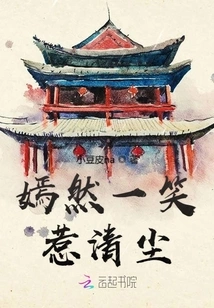 小豆皮ha◎著
嫣然一笑
惹清尘
云起书院